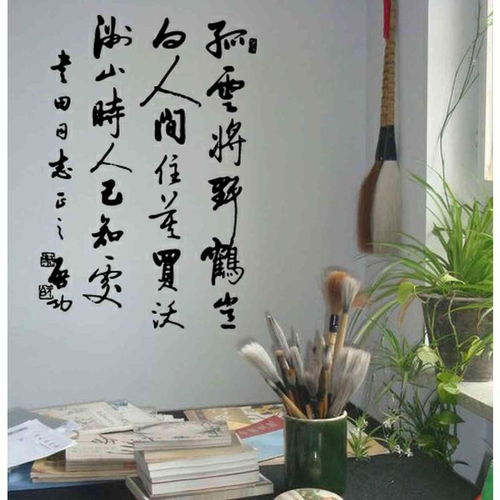 孤雲將野鶴豈
向人間住莫買沃
洲山時人已知處
田同志正之
啓功